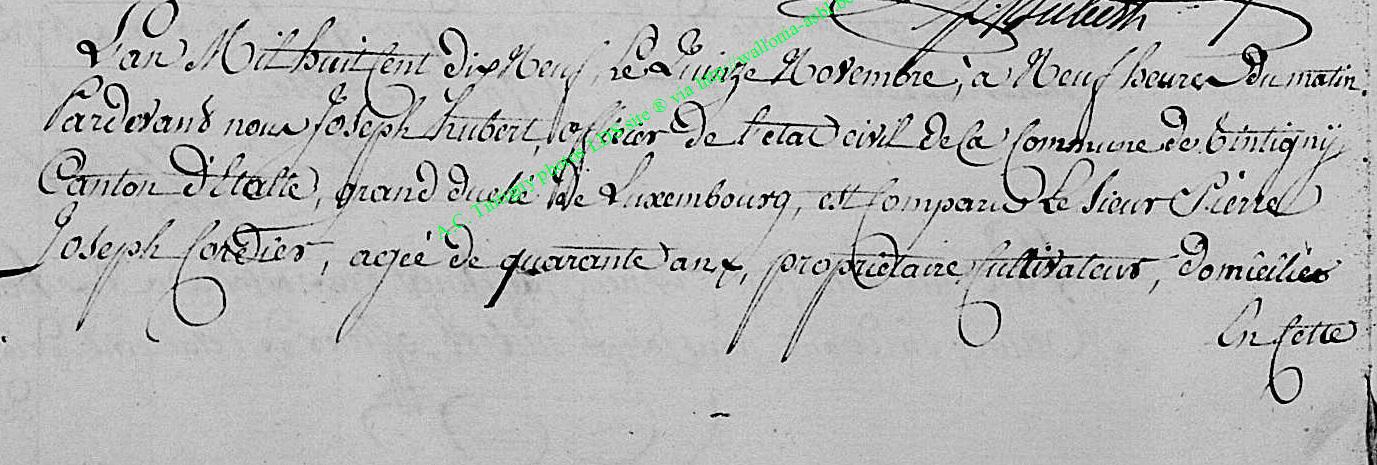 J. Hubert
L'an Mil huit Cent dix Neuf, le Quinze Novembre, à Neuf heures du matin.
Pardevant nous Joseph hubert, officier de l'état civil de la Commune de tintigny,
Canton d'Etalle, grand duché de Luxembourg, est Comparu le Sieur Pierre
Joseph Cordier, agée de quarante ans, propriétaire Cultivateur, domiciliée
En Cette
A.C. Tintigny photos LDS site ® via http://wallonia-asbl.be